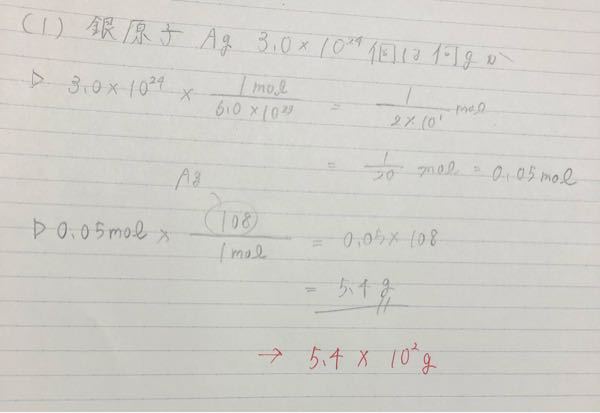 (1) 銀原子 Ag 3.0×10²⁴個は何gか
▷ 3.0×10²⁴ × 1mol / 6.0×10²³ = 1 / 2×10¹ mol
= 1/20 mol = 0.05mol
Ag
▷ 0.05mol × 108 / 1mol = 0.05×108
= 5.4 g
→ 5.4 × 10² g